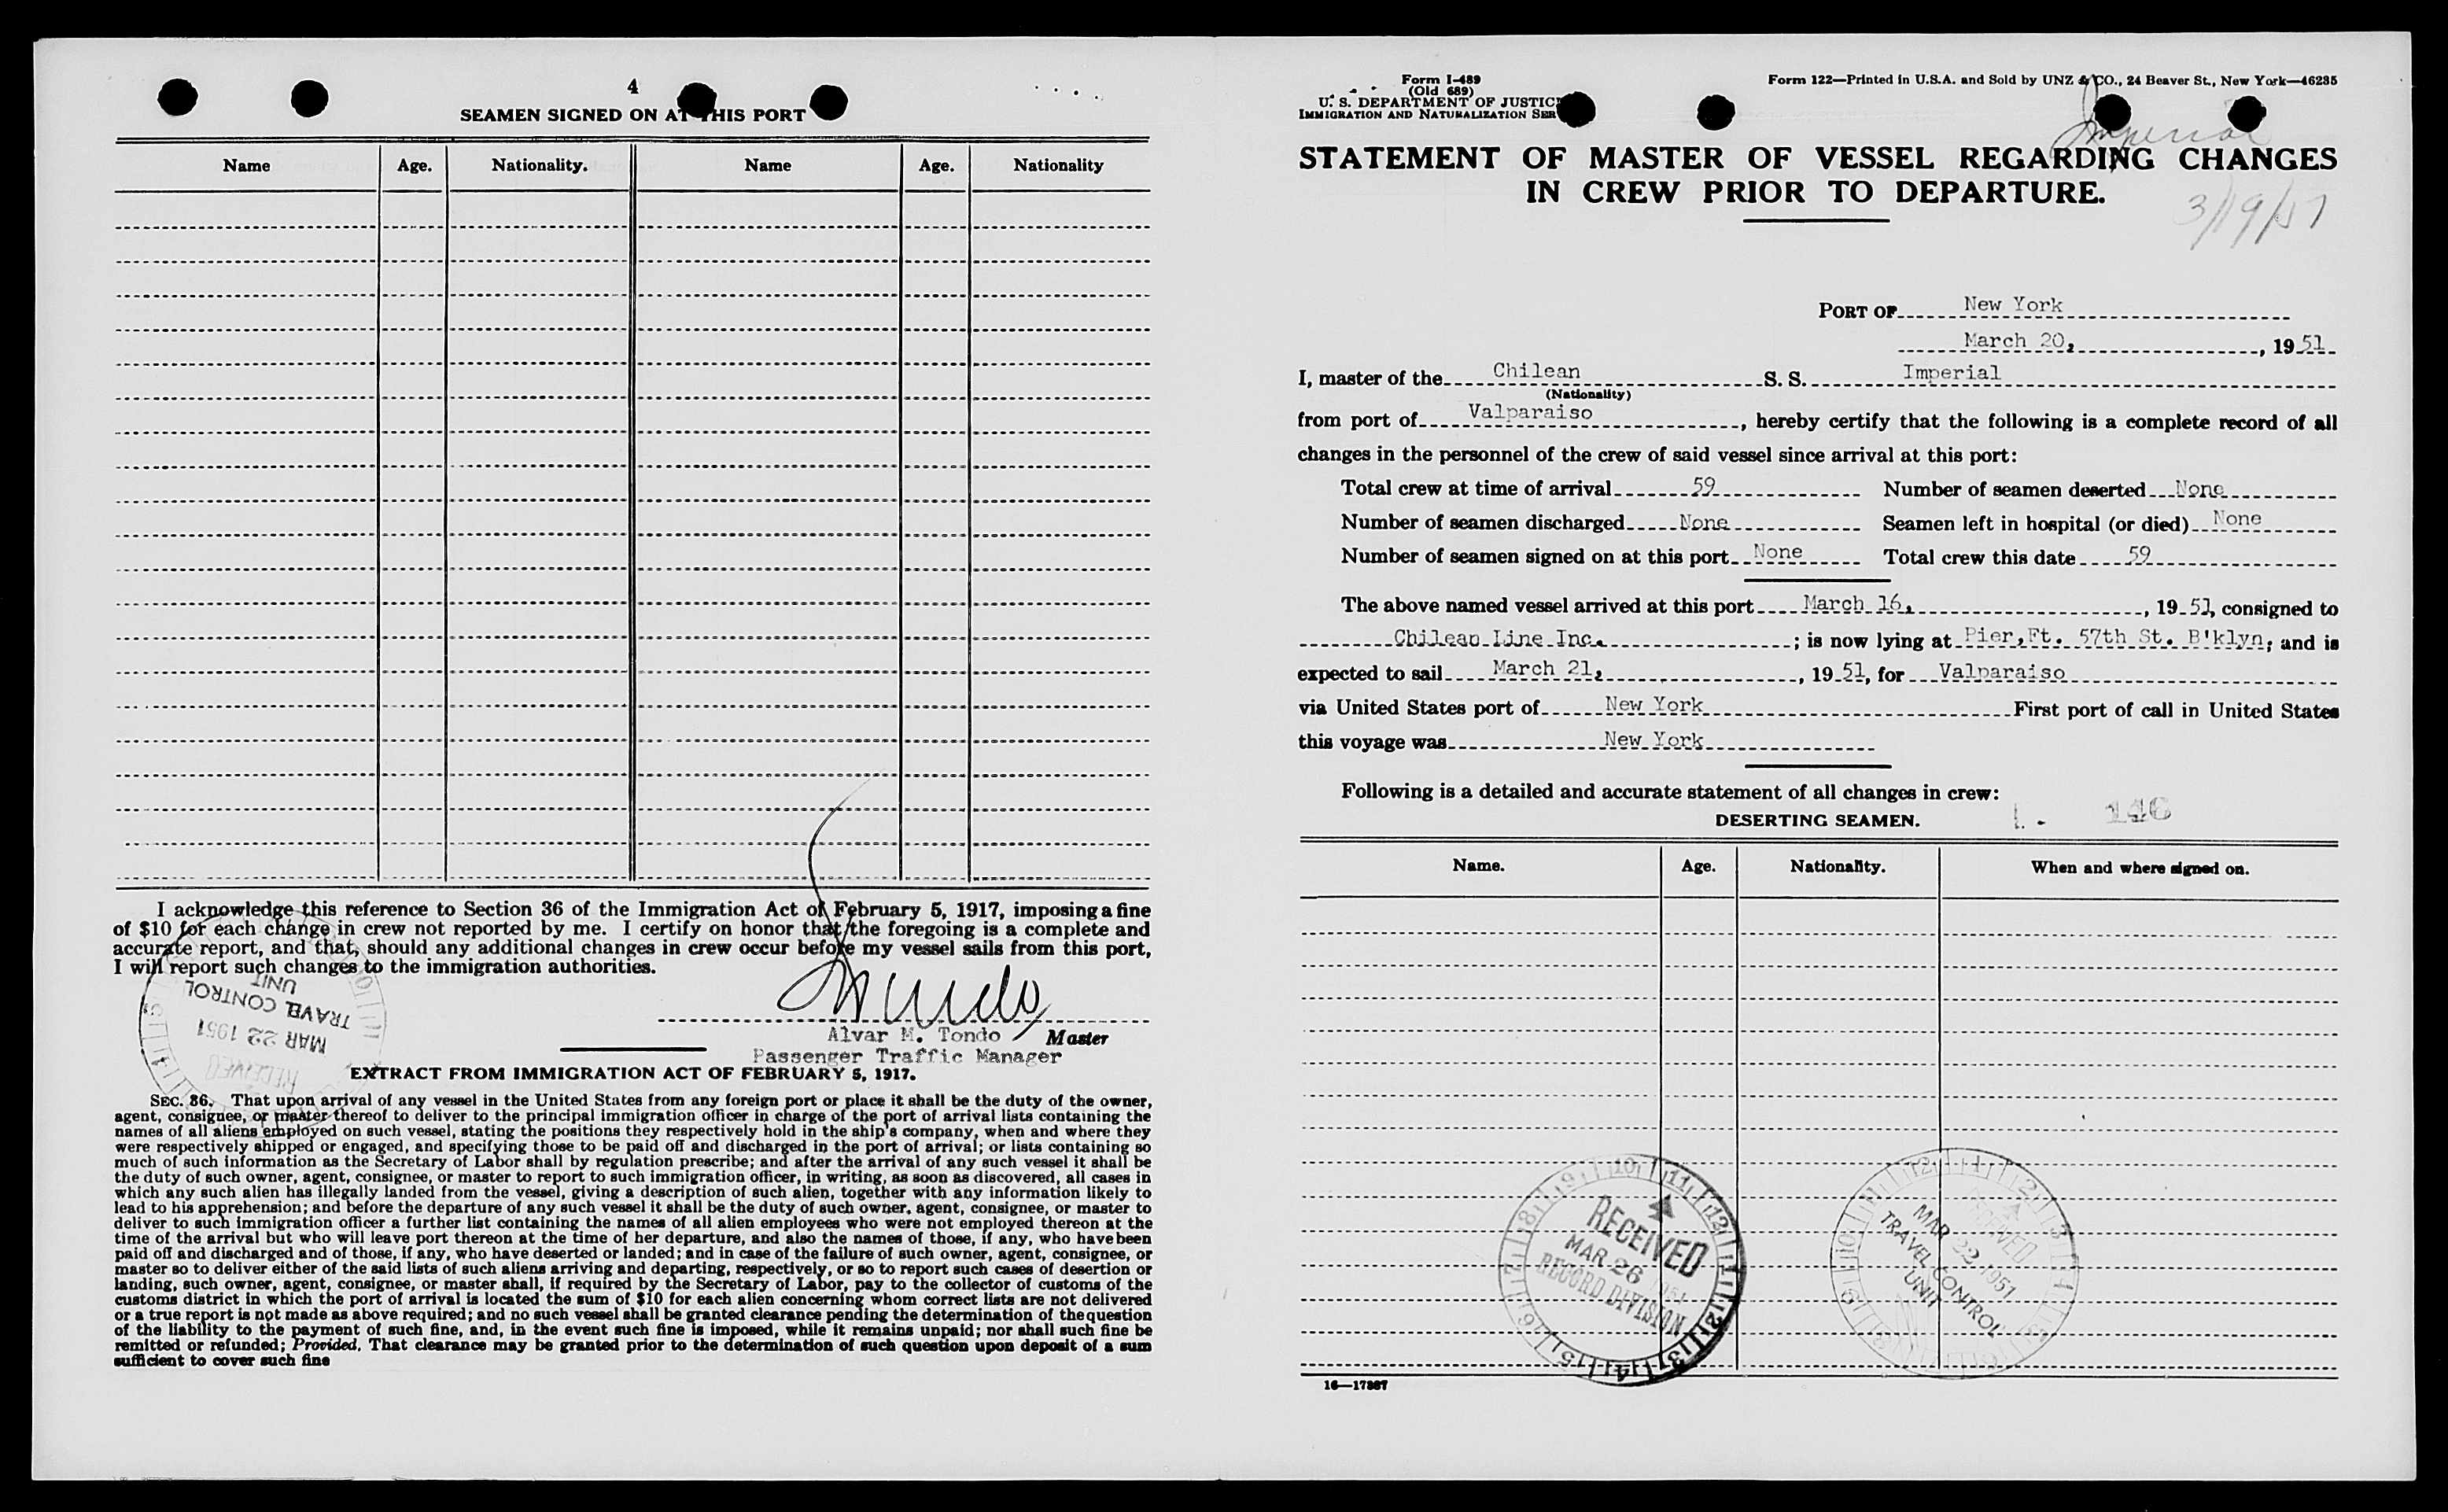 4
SEAMEN SIGNED ON AT THIS PORT
Name Age. Nationality. Name Age. Nationality
I acknowledge this reference to Section 36 of the Immigration Act of February 5, 1917, imposing a fine
of $10 for each change in crew not reported by me. I certify on honor that the foregoing is a complete and
accurate report, and that, should any additional changes in crew occur before my vessel sails from this port,
I will report such changes to the immigration authorities.
RECEIVED
MAR 22 1951
TRAVEL CONTROL
UNIT
Tondo
Alvar M. Tondo Master
Passenger Traffic Manager
EXTRACT FROM IMMIGRATION ACT OF FEBRUARY 5, 1917.
SEC. 36. That upon arrival of any vessel in the United States from any foreign port or place it shall be the duty of the owner,
agent, consignee, or master thereof to deliver to the principal immigration officer in charge of the port of arrival lists containing the
names of all aliens employed on such vessel, stating the positions they respectively hold in the ship's company, when and where they
were respectively shipped or engaged, and specifying those to be paid off and discharged in the port of arrival; or lists containing so
much of such information as the Secretary of Labor shall by regulation prescribe; and after the arrival of any such vessel it shall be
the duty of such owner, agent, consignee, or master to report to such immigration officer, in writing, as soon as discovered, all cases in
which any such alien has illegally landed from the vessel, giving a description of such alien, together with any information likely to
lead to his apprehension; and before the departure of any such vessel it shall be the duty of such owner, agent, consignee, or master to
deliver to such immigration officer a further list containing the names of all alien employees who were not employed thereon at the
time of the arrival but who will leave port thereon at the time of her departure, and also the names of those, if any, who have been
paid off and discharged and of those, if any, who have deserted or landed; and in case of the failure of such owner, agent, consignee, or
master so to deliver either of the said lists of such aliens arriving and departing, respectively, or so to report such cases of desertion or
landing, such owner, agent, consignee, or master shall, if required by the Secretary of Labor, pay to the collector of customs of the
customs district in which the port of arrival is located the sum of $10 for each alien concerning whom correct lists are not delivered
or a true report is not made as above required; and no such vessel shall be granted clearance pending the determination of the question
of the liability to the payment of such fine, and, in the event such fine is imposed, while it remains unpaid; nor shall such fine be
remitted or refunded; Provided, That clearance may be granted prior to the determination of such question upon deposit of a sum
sufficient to cover such fine
Form I-489
(Old 689)
U. S. DEPARTMENT OF JUSTIC
IMMIGRATION AND NATURALIZATION SER
Form 122—Printed in U.S.A. and Sold by UNZ & CO., 24 Beaver St., New York—46235
Imperial
STATEMENT OF MASTER OF VESSEL REGARDING CHANGES
IN CREW PRIOR TO DEPARTURE.
3/19/51
PORT OF New York
March 20, , 19 51
I, master of the Chilean S. S. Imperial
(Nationality)
from port of Valparaiso , hereby certify that the following is a complete record of all
changes in the personnel of the crew of said vessel since arrival at this port:
Total crew at time of arrival 59 Number of seamen deserted None
Number of seamen discharged None Seamen left in hospital (or died) None
Number of seamen signed on at this port None Total crew this date 59
The above named vessel arrived at this port March 16, , 19 51, consigned to
Chilean Line Inc. ; is now lying at Pier, Ft. 57th St. B'klyn; and is
expected to sail March 21, , 19 51, for Valparaiso
via United States port of New York First port of call in United States
this voyage was New York
Following is a detailed and accurate statement of all changes in crew:
DESERTING SEAMEN.
146
Name. Age. Nationality. When and where signed on.
RECEIVED
MAR 26 1951
RECORD DIVISION
RECEIVED
MAR 22 1951
TRAVEL CONTROL
UNIT
16—17387